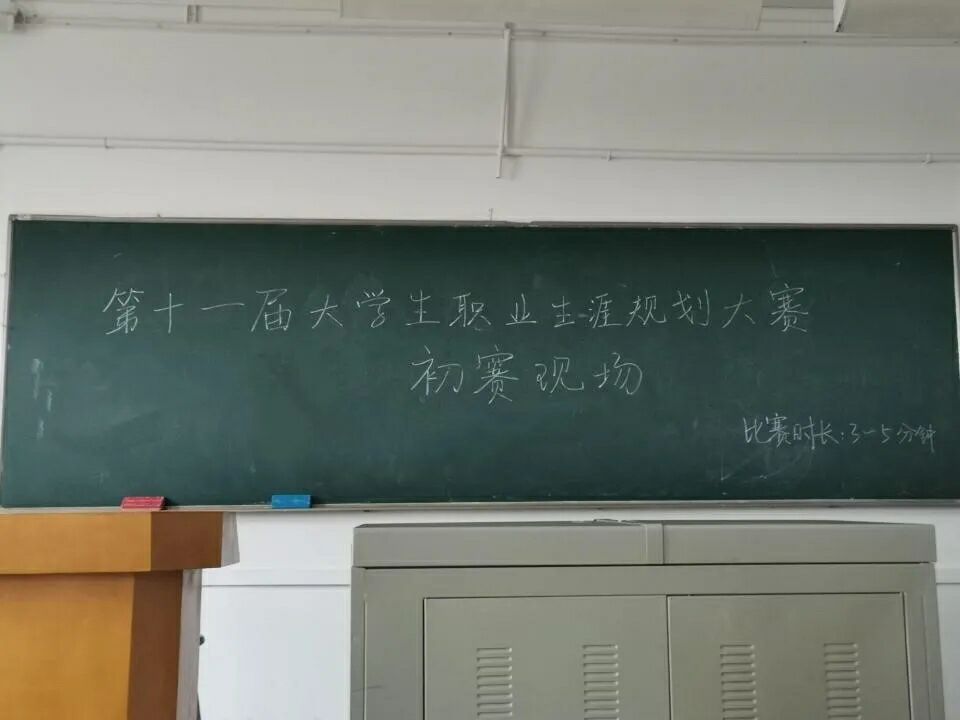 第十一届大学生职业生涯规划大赛
初赛现场
比赛时长:3-5分钟